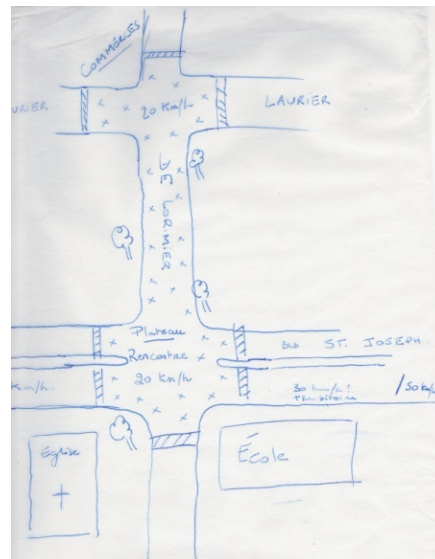 COMMERCES
URIER
20 Km/h
LAURIER
DE LORIMIER
Plateau
Rencontre
BLD ST. JOSEPH.
Km/h.
20 Km/h
30 km/h
/50 km/h
Église
École